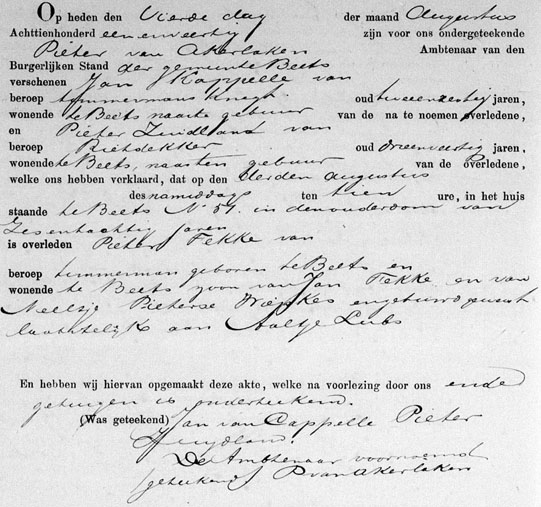 Op heden den Vierde dag der maand Augustus
Achttienhonderd eenenveertig zijn voor ons ondergeteekende
Pieter van Akerlaken Ambtenaar van den
Burgerlijken Stand der gemeente Beets
verschenen Jan Kappelle van
beroep timmermans knegt oud tweeenzestig jaren,
wonende te Beets naaste gebuur van de na te noemen overledene,
en Pieter Zuidland van
beroep Rietdekker oud drieenveertig jaren,
wonende te Beets, naasten gebuur van de overledene,
welke ons hebben verklaard, dat op den derden augustus
des namiddags ten tien ure, in het huis
staande te Beets No 51. in den ouderdom van
Zesentachtig Jaren
is overleden Pieter Fekke van
beroep timmerman geboren te Beets en
wonende te Beets zoon van Jan Fekke en van
Neeltje Pieterse en gehuwd geweest
laatstelijk aan Aaltje Lubs
En hebben wij hiervan opgemaakt deze akte, welke na voorlezing door ons ende
getuigen is onderteekend.
(Was geteekend) Jan van Cappelle Pieter
Zuydland.
De Ambtenaar voornoemd
geteekend P van Akerlaken